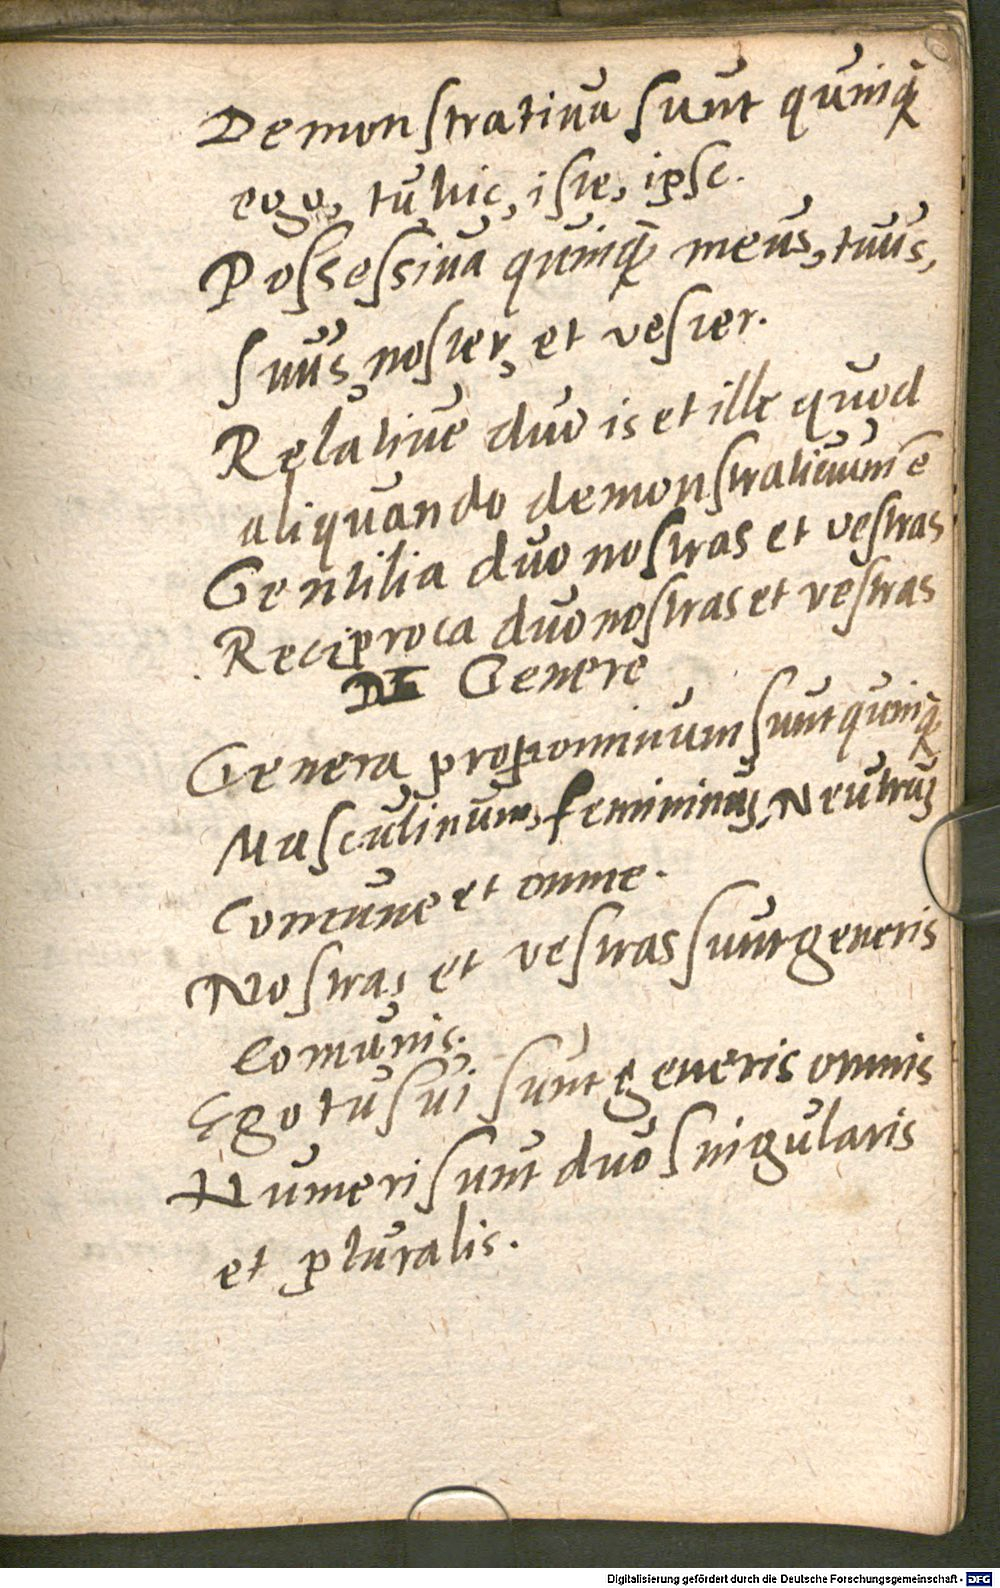 Demonstratiua sunt quinq̃
ego, tu hic, iste, ipse.
Possessiua quinq̃ meus, tuus,
suus, noster, et vester.
Relatiue duo is et ille quod
aliquando demonstratiuum ẽ
Gentilia duo nostras et vestras
Reciproca duo nostras et vestras
DE Genere
Genera pronominum sunt quinq̃
Masculinum, femininũ, Neutrũ
Comune et omne.
Nostras et vestras sunt generis
Comunis.
Ego tu sui sunt generis omnis
Numeri sunt duo singularis
et pluralis.
Digitalisierung gefördert durch die Deutsche Forschungsgemeinschaft - DFG